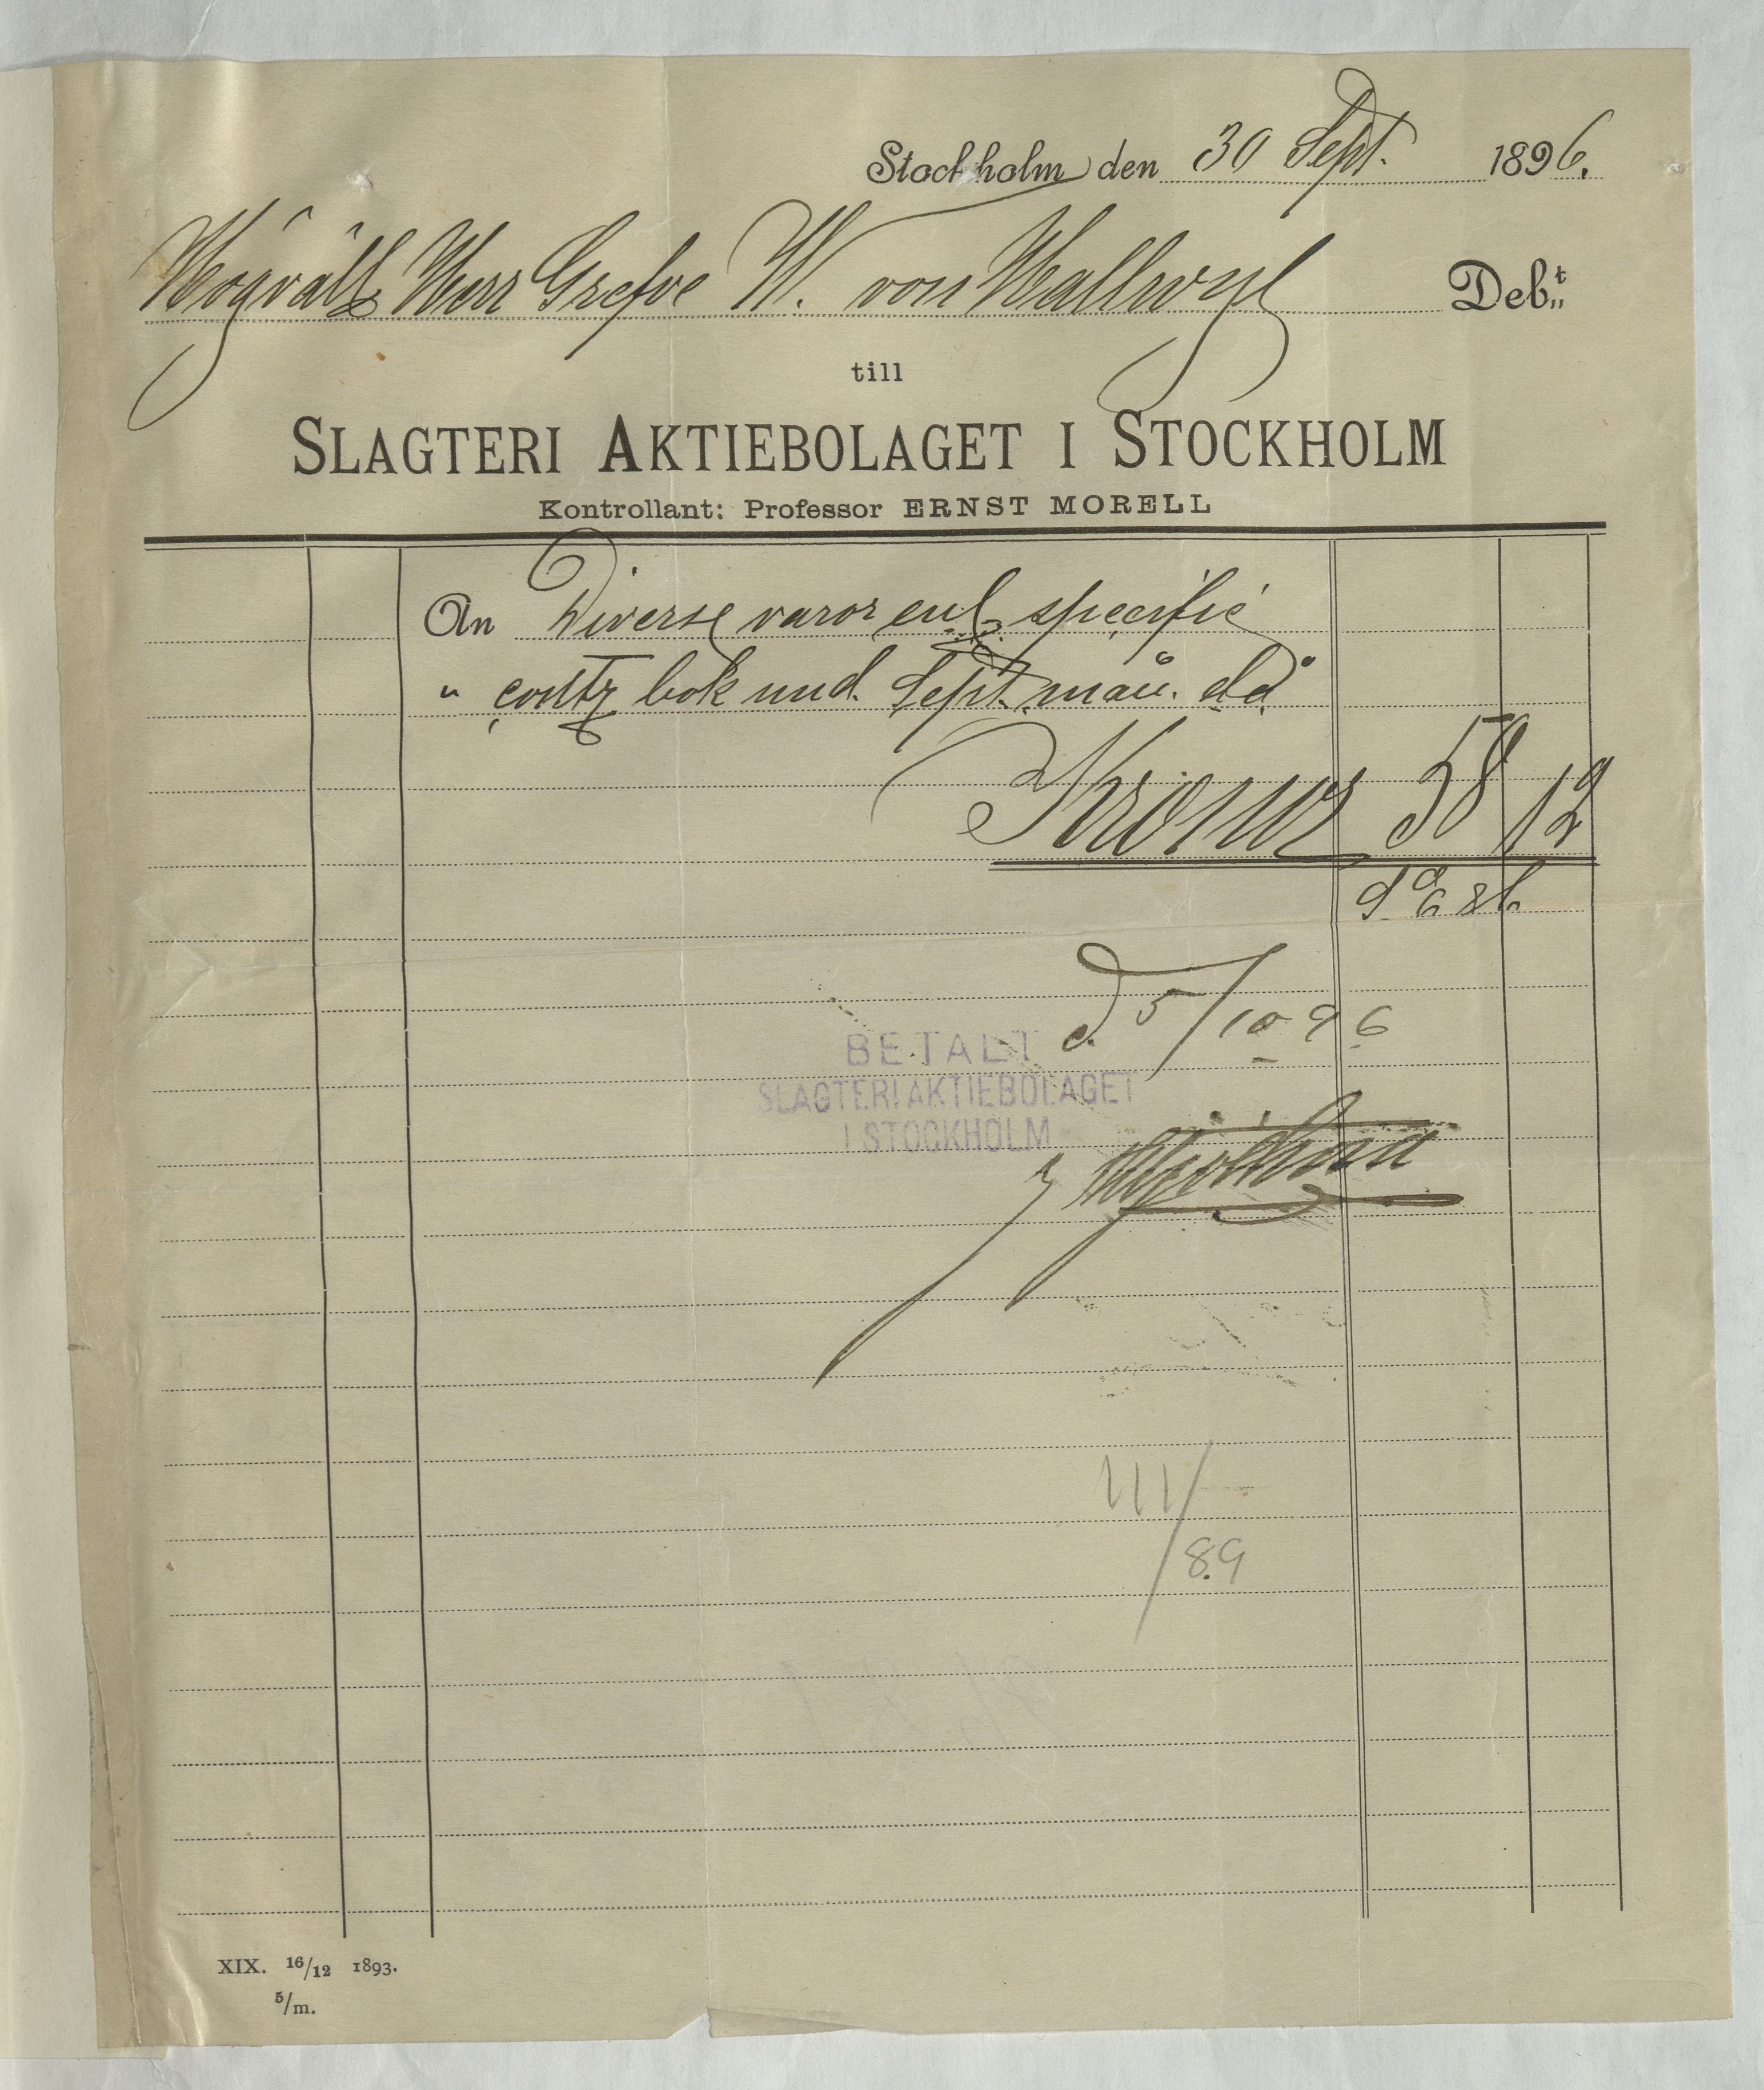 Stockholm den 30 Sept. 1896.
Högvälb Herr Grefve W. von Hallwyl Deb:t
till
SLAGTERI AKTIEBOLAGET I STOCKHOLM
Kontrollant: Professor ERNST MORELL
An Diverse varor enl. specific
" contr bok und. Sept. mån. då
Kronor 58 12
d 5/10 96
BETALT
SLAGTERIAKTIEBOLAGET
I STOCKHOLM
111/
89
XIX. 16/12 1893.
5/m.